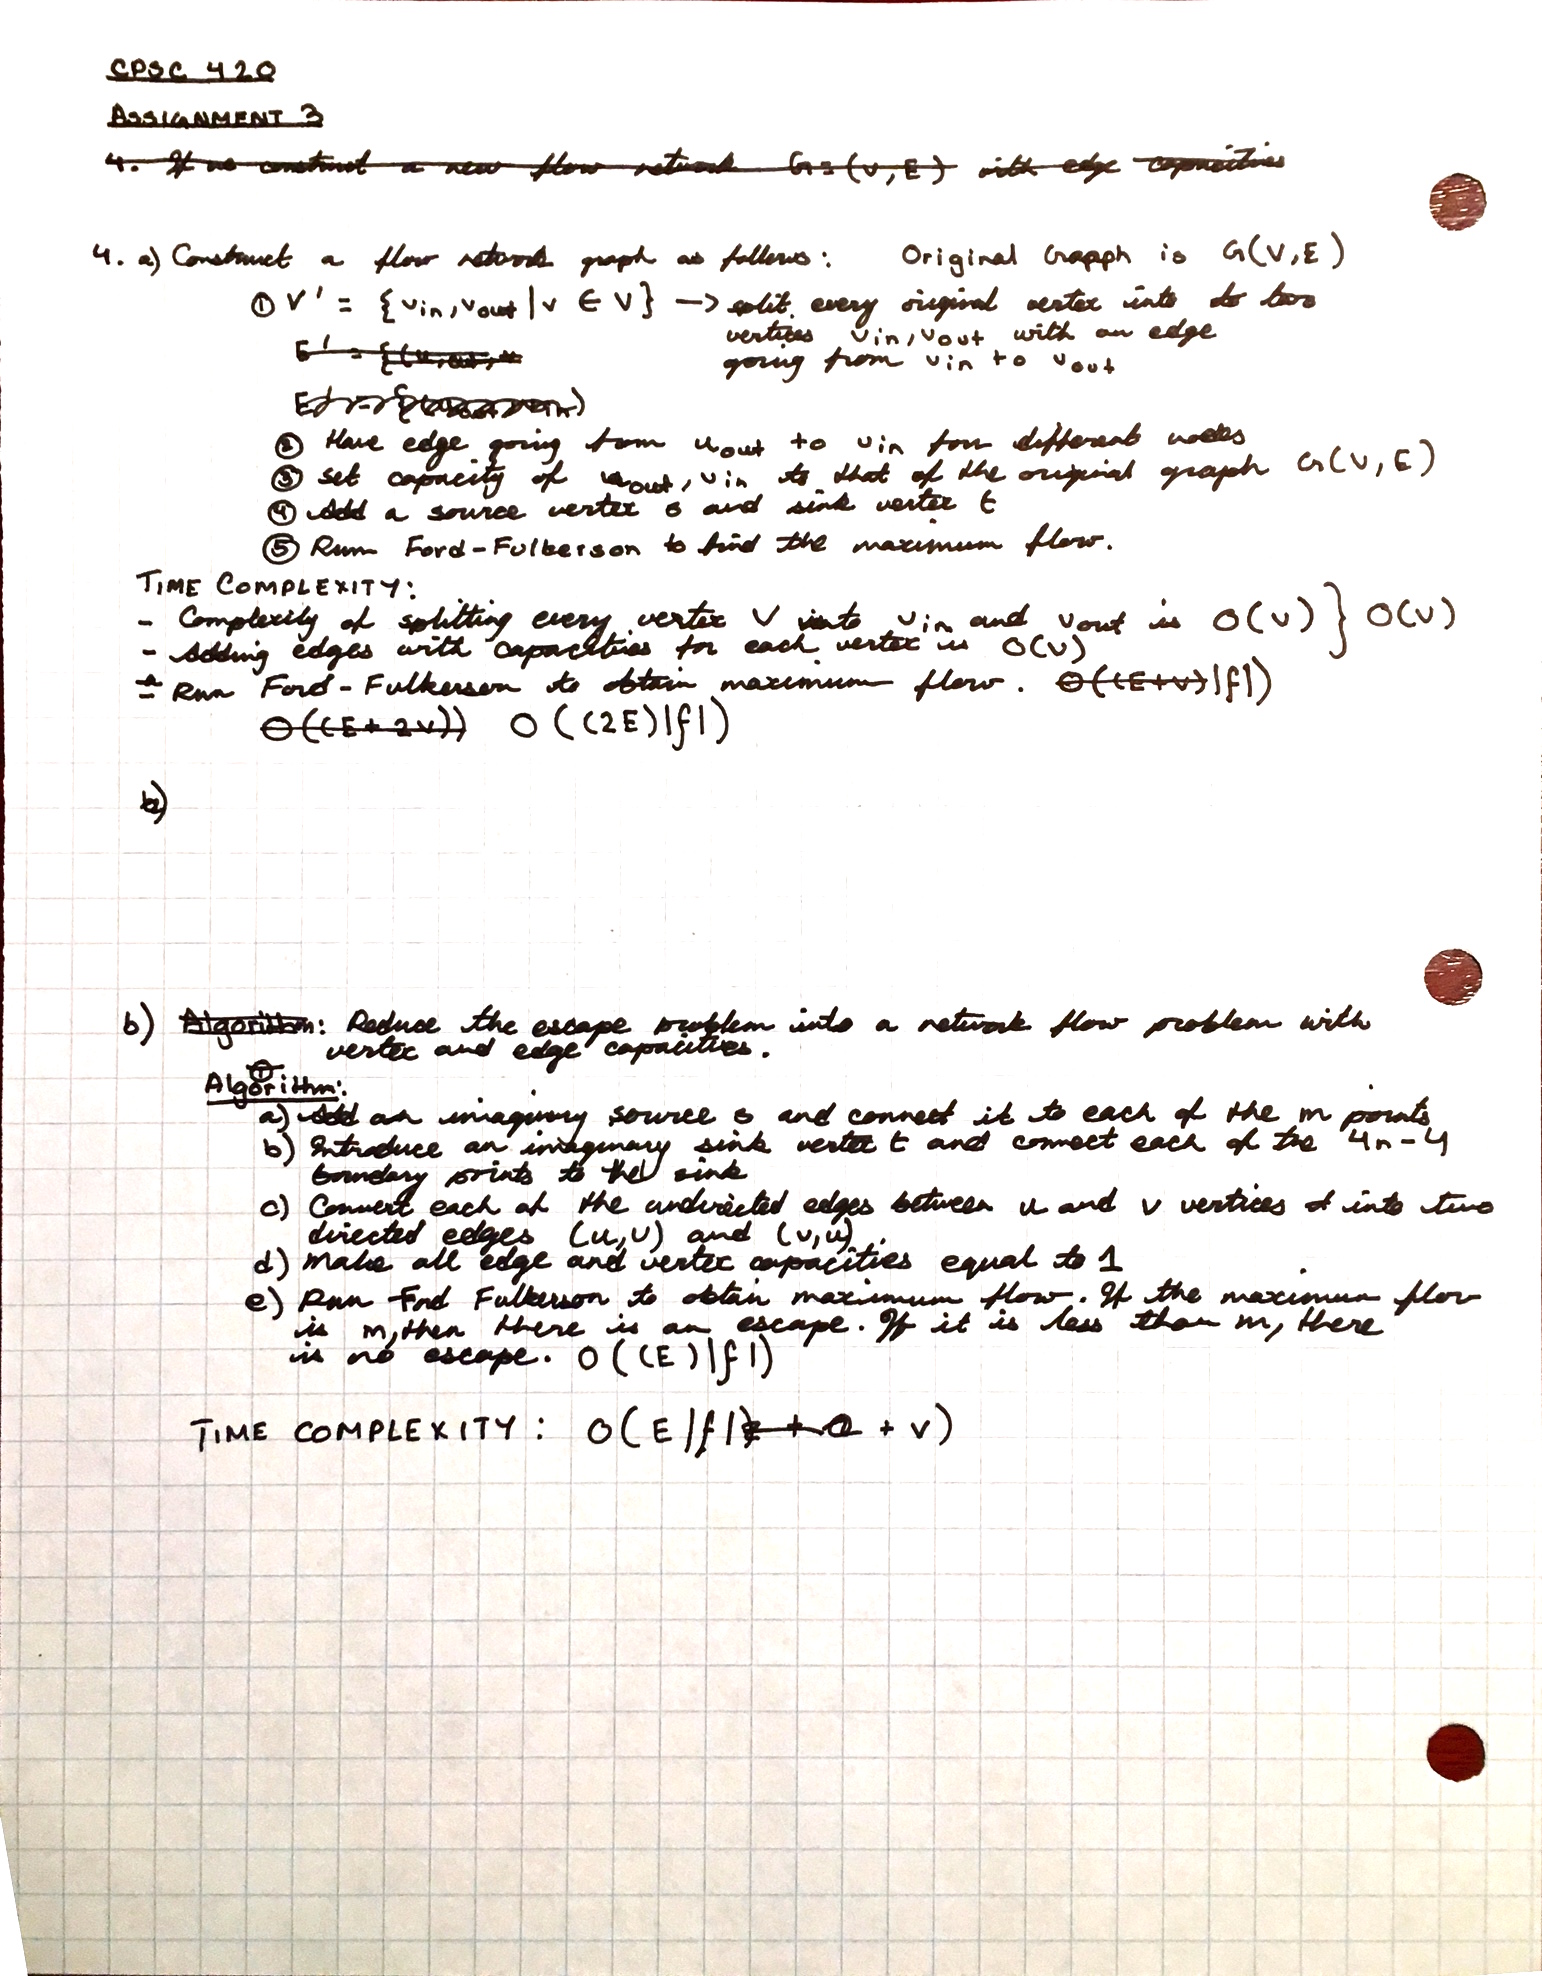 CPSC 420
ASSIGNMENT 3
4. If we construct a new flow network G=(V,E) with edge capacities
4. a) Construct a flow network graph as follows: Original Grapph is G(V,E)
① V' = {vin, vout | v ∈ V} → split every original vertex into do two
vertices vin, vout with an edge
going from vin to vout
E' = {(u,out,
② Have edge going from uout to vin for different nodes
③ set capacity of uout, vin to that of the original graph G(V,E)
④ Add a source vertex s and sink vertex t
⑤ Run Ford-Fulkerson to find the maximum flow.
TIME COMPLEXITY:
- Complexity of splitting every vertex V into vin and vout is O(V) } O(V)
- Adding edges with capacities for each vertex is O(V)
- Run Ford-Fulkerson to obtain maximum flow. O((E+V)|f|)
O((E+2V)) O((2E)|f|)
b)
b) Algorithm: Reduce the escape problem into a network flow problem with
vertex and edge capacities.
Algorithm:
a) Add an imaginary source s and connect it to each of the m points
b) Introduce an imaginary sink vertex t and connect each of the 4n-4
boundary points to the sink
c) Convert each of the undirected edges between u and v vertices into two
directed edges (u,v) and (v,u).
d) Make all edge and vertex capacities equal to 1
e) Run Ford Fulkerson to obtain maximum flow. If the maximum flow
is m, then there is an escape. If it is less than m, there
is no escape. O((E)|f|)
TIME COMPLEXITY: O(E|f| + V)